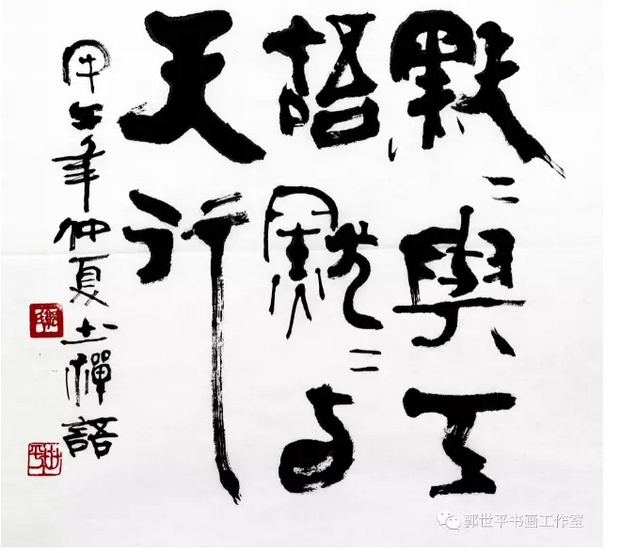 默〻與天
語默〻与
天行
甲午年仲夏书禪語
世平
郭世平书画工作室